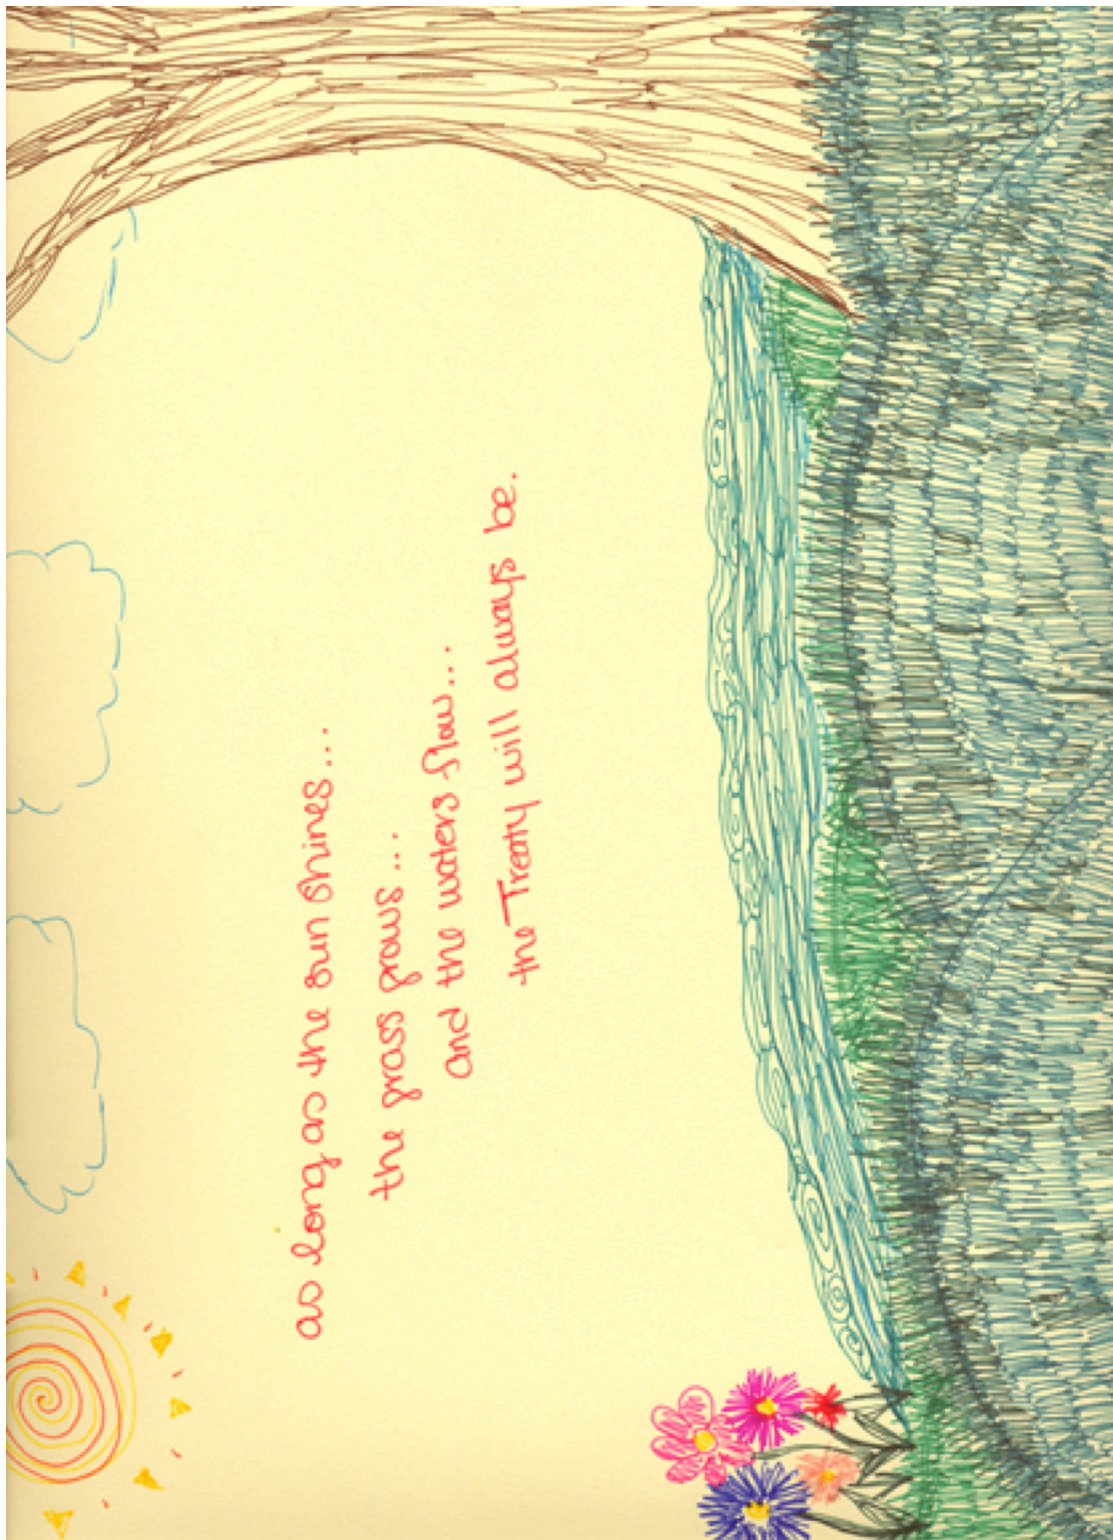 as long as the sun shines...
the grass grows...
and the waters flow...
the Treaty will always be.